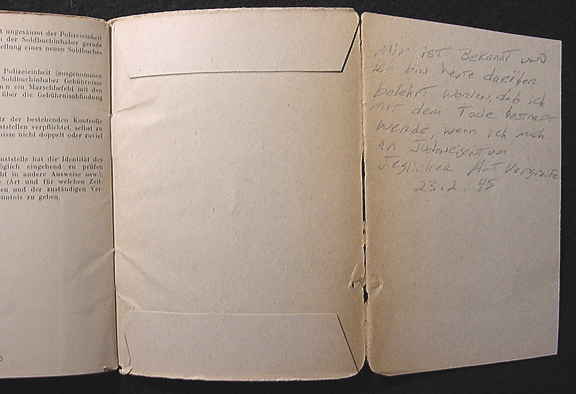 t ungesäumt der Polizeieinheit
n der Soldbuchinhaber gerade
ellung eines neuen Soldbuches
Polizeieinheit
Soldbuchinhaber
ein Marschbefehl mit den
über die Gebührnisabfindung
tz der bestehenden Kontrolle
tstellen verpflichtet, selbst zu
nisse nicht doppelt oder zuviel
nststelle hat die Identität des
öglich, eingehend zu prüfen
ht in andere Ausweise usw.).
e (Art und für welchen Zeit-
en und der zuständigen Ver-
nntnis zu geben.
Mir ist Bekannt und
ich bin heute darüber
belehrt worden, daß ich
mit dem Tode bestraft
werde, wenn ich mich
an
Jeglicher Art vergreife
23.2.45